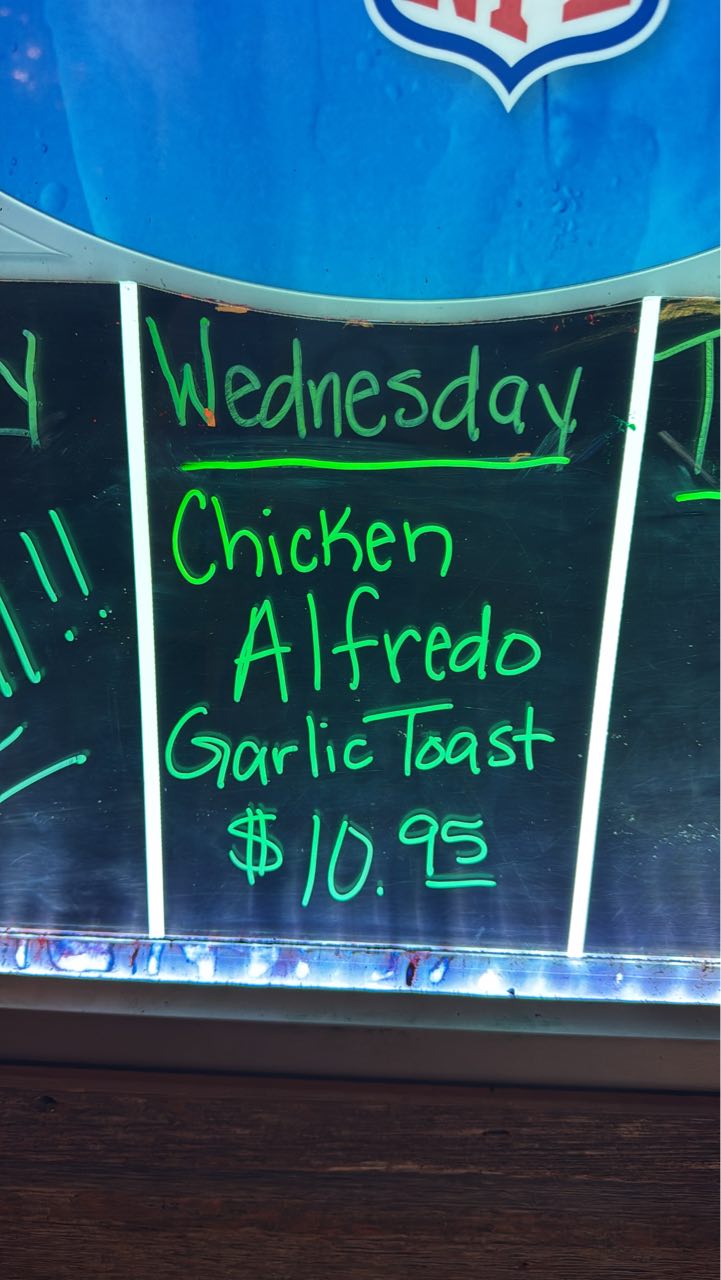 NFL
Wednesday
Chicken
Alfredo
Garlic Toast
$10.95